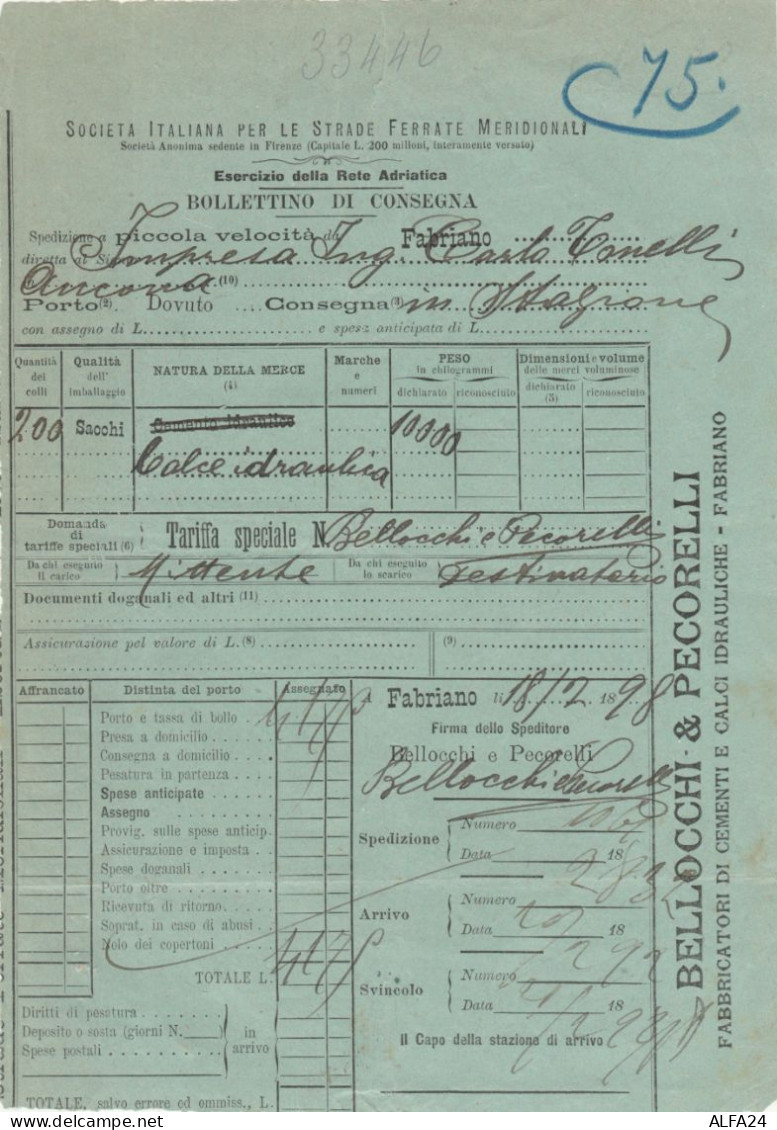 33446
75.
SOCIETA ITALIANA PER LE STRADE FERRATE MERIDIONALI
Società Anonima sedente in Firenze (Capitale L. 200 milioni, interamente versato)
Esercizio della Rete Adriatica
BOLLETTINO DI CONSEGNA
Spedizione a piccola velocità da Fabriano
diretta al Sig. Impresa Ing. Carlo
Ancona (10)
Porto (2) Dovuto .... Consegna (3) in Stazione
con assegno di L. e spese anticipata di L.
Quantità dei colli
Qualità dell' imballaggio
NATURA DELLA MERCE (4)
Marche e numeri
PESO in chilogrammi
dichiarato riconosciuto
Dimensioni e volume delle merci voluminose
dichiarato (5) riconosciuto
200 Sacchi Cemento idraulico 10000
Calce idraulica
Domanda di tariffe speciali (6) Tariffa speciale N. Bellocchi e Pecorelli
Da chi eseguito il carico Mittente Da chi eseguito lo scarico Destinatario
Documenti doganali ed altri (11)
Assicurazione pel valore di L. (8) (9)
Affrancato Distinta del porto Assegnato
Porto e tassa di bollo 41 75
Presa a domicilio
Consegna a domicilio
Pesatura in partenza
Spese anticipate
Assegno
Provvig. sulle spese anticip.
Assicurazione e imposta
Spese doganali
Porto oltre
Ricevuta di ritorno
Soprat. in caso di abusi
Nolo dei copertoni
TOTALE L. 41 75
Diritti di pesatura
Deposito o sosta (giorni N. )
Spese postali
in arrivo
TOTALE, salvo errore od ommiss., L.
Fabriano li 18/2 1898
Firma dello Speditore
Bellocchi e Pecorelli
Bellocchi e Pecorelli
Spedizione Numero
Data 18
Arrivo Numero
Data 18
Svincolo Numero
Data 18
Il Capo della stazione di arrivo
BELLOCCHI & PECORELLI
FABBRICATORI DI CEMENTI E CALCI IDRAULICHE - FABRIANO
ALFA24